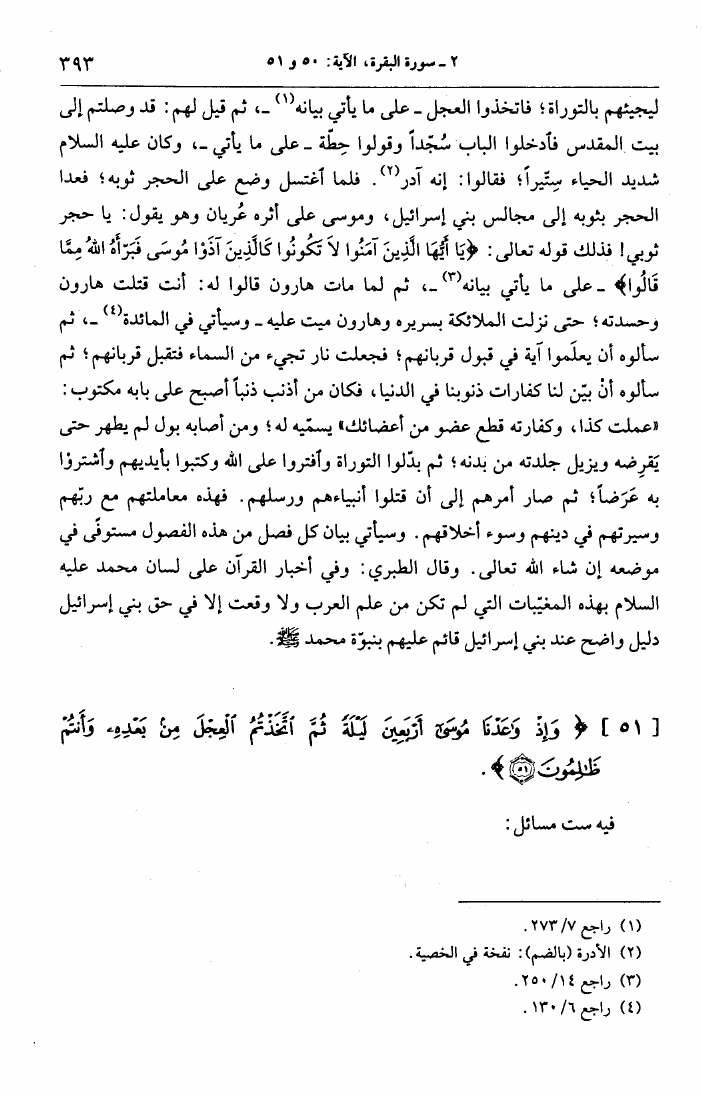 ٢ - سورة البقرة، الآية: ٥٠ و ٥١
٣٩٣
ليجيئهم بالتوراة؛ فاتخذوا العجل - على ما يأتي بيانه(١) -، ثم قيل لهم: قد وصلتم إلى
بيت المقدس فٱدخلوا الباب سُجّداً وقولوا حِطّة - على ما يأتي -، وكان عليه السلام
شديد الحياء سِتّيراً؛ فقالوا: إنه آدر(٢). فلما ٱغتسل وضع على الحجر ثوبه؛ فعدا
الحجر بثوبه إلى مجالس بني إسرائيل، وموسى على أثره عُريان وهو يقول: يا حجر
ثوبي! فذلك قوله تعالى: ﴿يَا أَيُّهَا الَّذِينَ آمَنُوا لاَ تَكُونُوا كَالَّذِينَ آذَوْا مُوسَى فَبَرَّأَهُ اللهُ مِمَّا
قَالُوا﴾ - على ما يأتي بيانه(٣) -، ثم لما مات هارون قالوا له: أنت قتلت هارون
وحسدته؛ حتى نزلت الملائكة بسريره وهارون ميت عليه - وسيأتي في المائدة(٤) -، ثم
سألوه أن يعلَموا آية في قبول قربانهم؛ فجعلت نار تجيء من السماء فتقبل قربانهم؛ ثم
سألوه أنْ بيّن لنا كفارات ذنوبنا في الدنيا، فكان من أذنب ذنباً أصبح على بابه مكتوب:
«عملت كذا، وكفارته قطع عضو من أعضائك» يسمّيه له؛ ومن أصابه بول لم يطهر حتى
يَقرِضه ويزيل جلدته من بدنه؛ ثم بدّلوا التوراة وٱفتروا على الله وكتبوا بأيديهم وٱشتروْا
به عَرَضاً؛ ثم صار أمرهم إلى أن قتلوا أنبياءهم ورسلهم. فهذه معاملتهم مع ربّهم
وسيرتهم في دينهم وسوء أخلاقهم. وسيأتي بيان كل فصل من هذه الفصول مستوفًى في
موضعه إن شاء الله تعالى. وقال الطبري: وفي أخبار القرآن على لسان محمد عليه
السلام بهذه المغيّبات التي لم تكن من علم العرب ولا وقعت إلا في حق بني إسرائيل
دليل واضح عند بني إسرائيل قائم عليهم بنبوّة محمد ﷺ.
[٥١] ﴿وَإِذْ وَٰعَدْنَا مُوسَىٰٓ أَرْبَعِينَ لَيْلَةً ثُمَّ ٱتَّخَذْتُمُ ٱلْعِجْلَ مِنۢ بَعْدِهِۦ وَأَنتُمْ
ظَٰلِمُونَ ٥١﴾.
فيه ست مسائل:
(١) راجع ٢٧٣/٧.
(٢) الأدرة (بالضم): نفخة في الخصية.
(٣) راجع ٢٥٠/١٤.
(٤) راجع ١٣٠/٦.